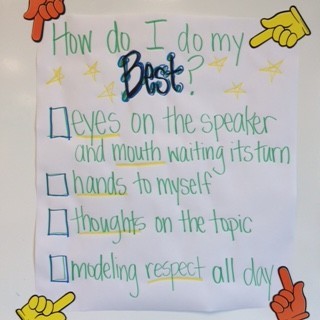 How do I do my
Best?
eyes on the speaker
and mouth waiting its turn
hands to myself
thoughts on the topic
modeling respect all day